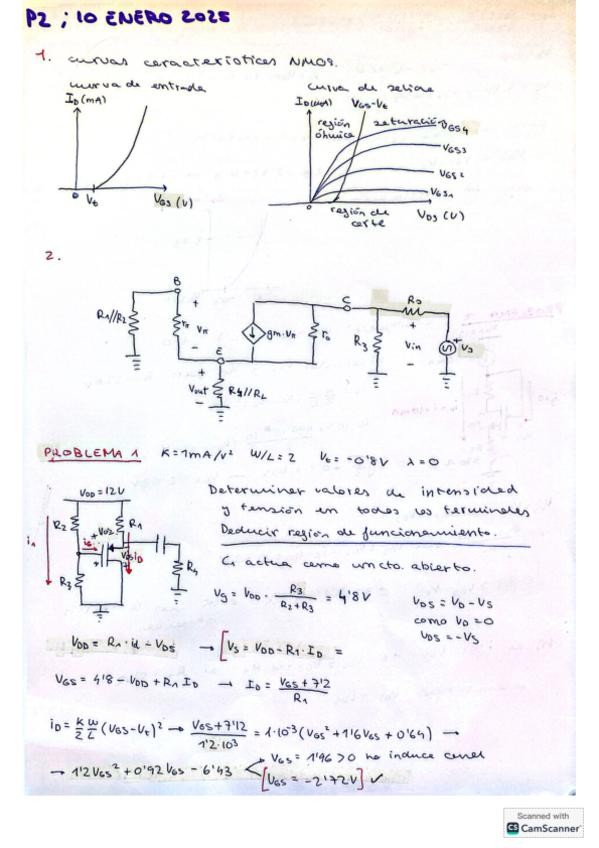 P2 ; 10 ENERO 2025
1. curvas características NMOS.
curva de entrada
curva de salida
ID (mA)
0
Vt
VGS (V)
ID (mA)
VGS-Vt
región óhmica
saturación
VGS4
VGS3
VGS2
VGS1
0
región de corte
VDS (V)
2.
R1//R2
B
rπ
+
Vπ
-
E
gm·Vπ
ro
C
R3
RS
+
Vin
-
+
VS
+
Vout
-
R4//RL
PROBLEMA 1 K=1mA/V² W/L=2 Vt=-0'8V λ=0
VDD=12V
R2
R1
i1
iD
R3
R4
Determinar valores de intensidad
y tensión en todos los terminales
Deducir región de funcionamiento.
C1 actúa como un cto. abierto.
Vg = VDD · R3/(R2+R3) = 4'8V
VDS = VD-VS
como VD=0
VDS=-VS
VDD = R1·id - VDS → [VS = VDD-R1·ID =
VGS = 4'8 - VDD + R1 ID → ID = (VGS+7'2)/R1
iD = K/2 W/L (VGS-Vt)² → (VGS+7'12)/(1'2·10³) = 1·10⁻³(VGS²+1'6VGS+0'64) →
→ 1'2VGS²+0'92VGS-6'43
VGS = 1'96 >0 no induce canal
[VGS = -2'72V] ✓
Scanned with
CS CamScanner